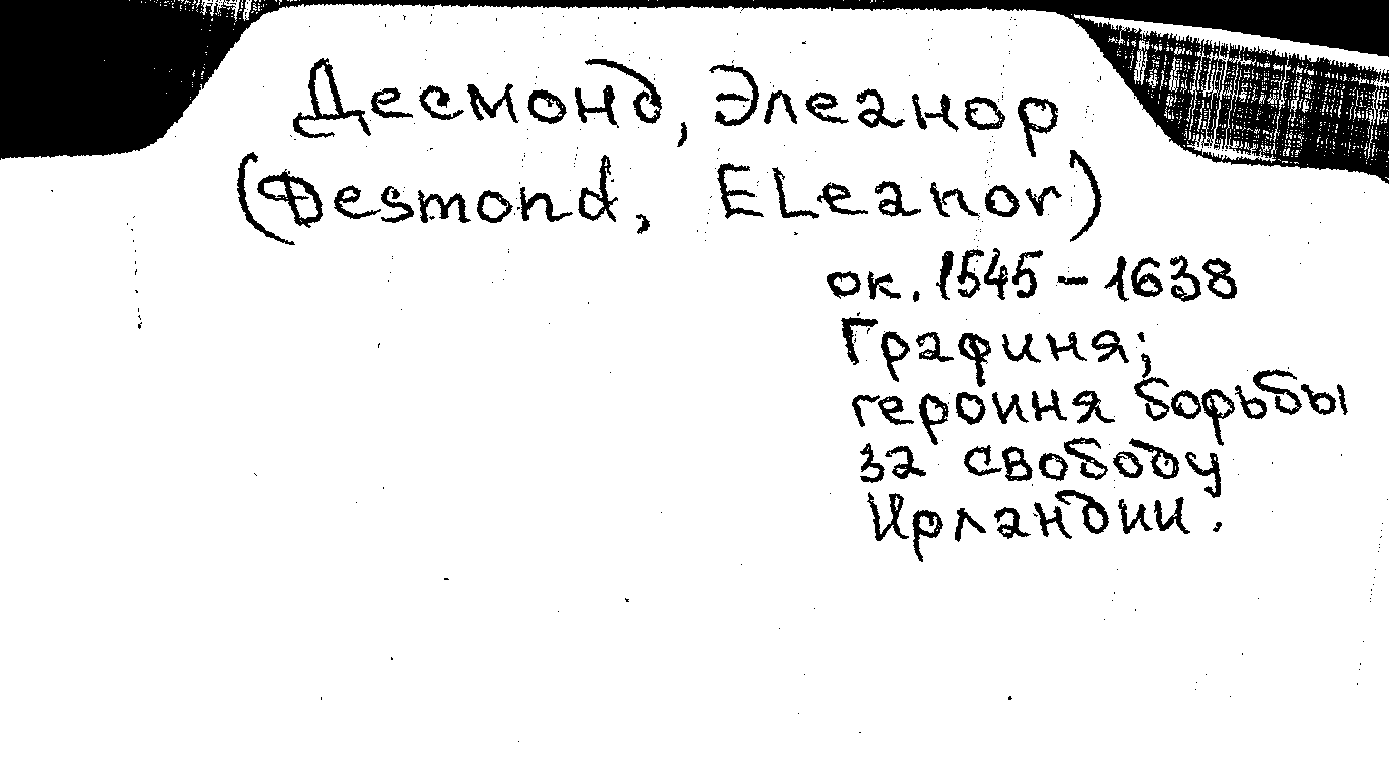 Десмонд, Элеанор
(Desmond, ELeanor)
ок. 1545 - 1638
Графиня;
героиня борьбы
за свободу
Ирландии.